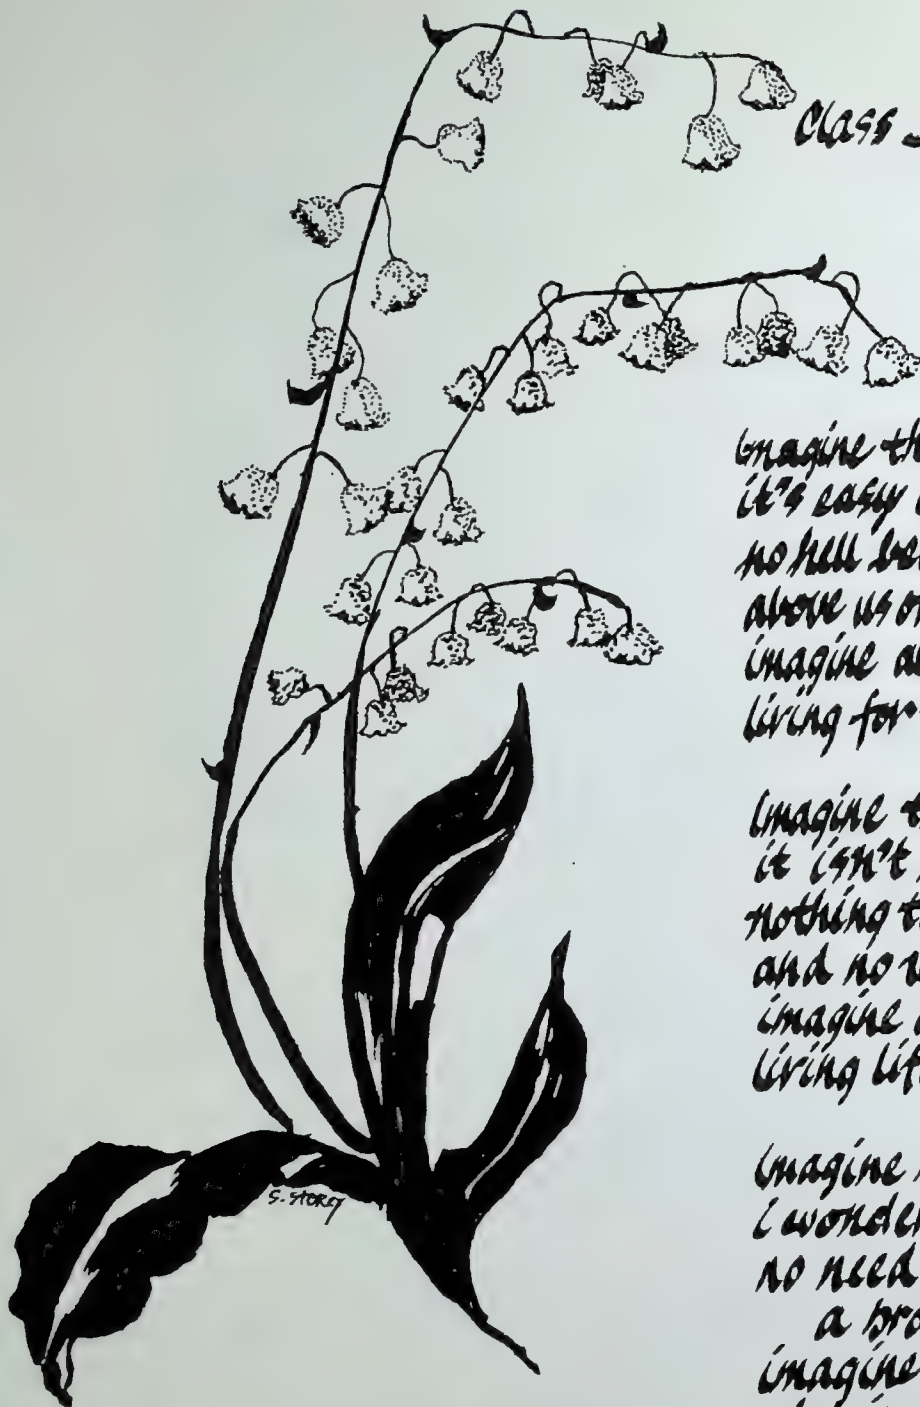 Class
Imagine th
it's easy
no hell be
above us o
imagine a
living for
Imagine t
it isn't
nothing t
and no
imagine
living lif
Imagine
i wonder
no need
a bro
imagine
S. STOREY